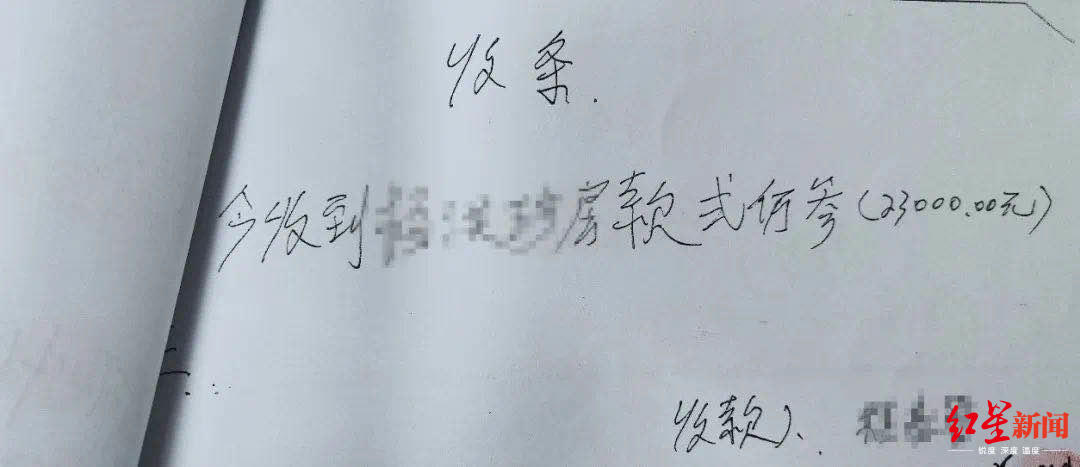 收条.
今收到 房款弍仟参(23000.00元)
收款人、
红星新闻
锐度 深度 温度